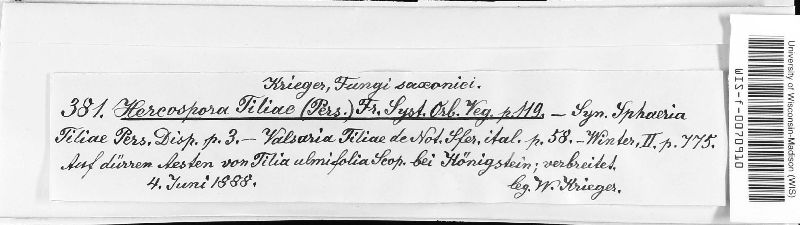 Krieger, Fungi saxonici.
381. Hercospora Tiliae (Pers.) Fr. Syst. Orb. Veg. p. 119. — Syn. Sphaeria
Tiliae Pers. Disp. p. 3. — Valsaria Tiliae de Not. Sfer. ital. p. 58. — Winter, II. p. 775.
Auf dürren Aesten von Tilia ulmifolia Scop. bei Königstein; verbreitet.
4. Juni 1888. leg. W. Krieger.
University of Wisconsin-Madison (WIS)
WIS-f-0070910